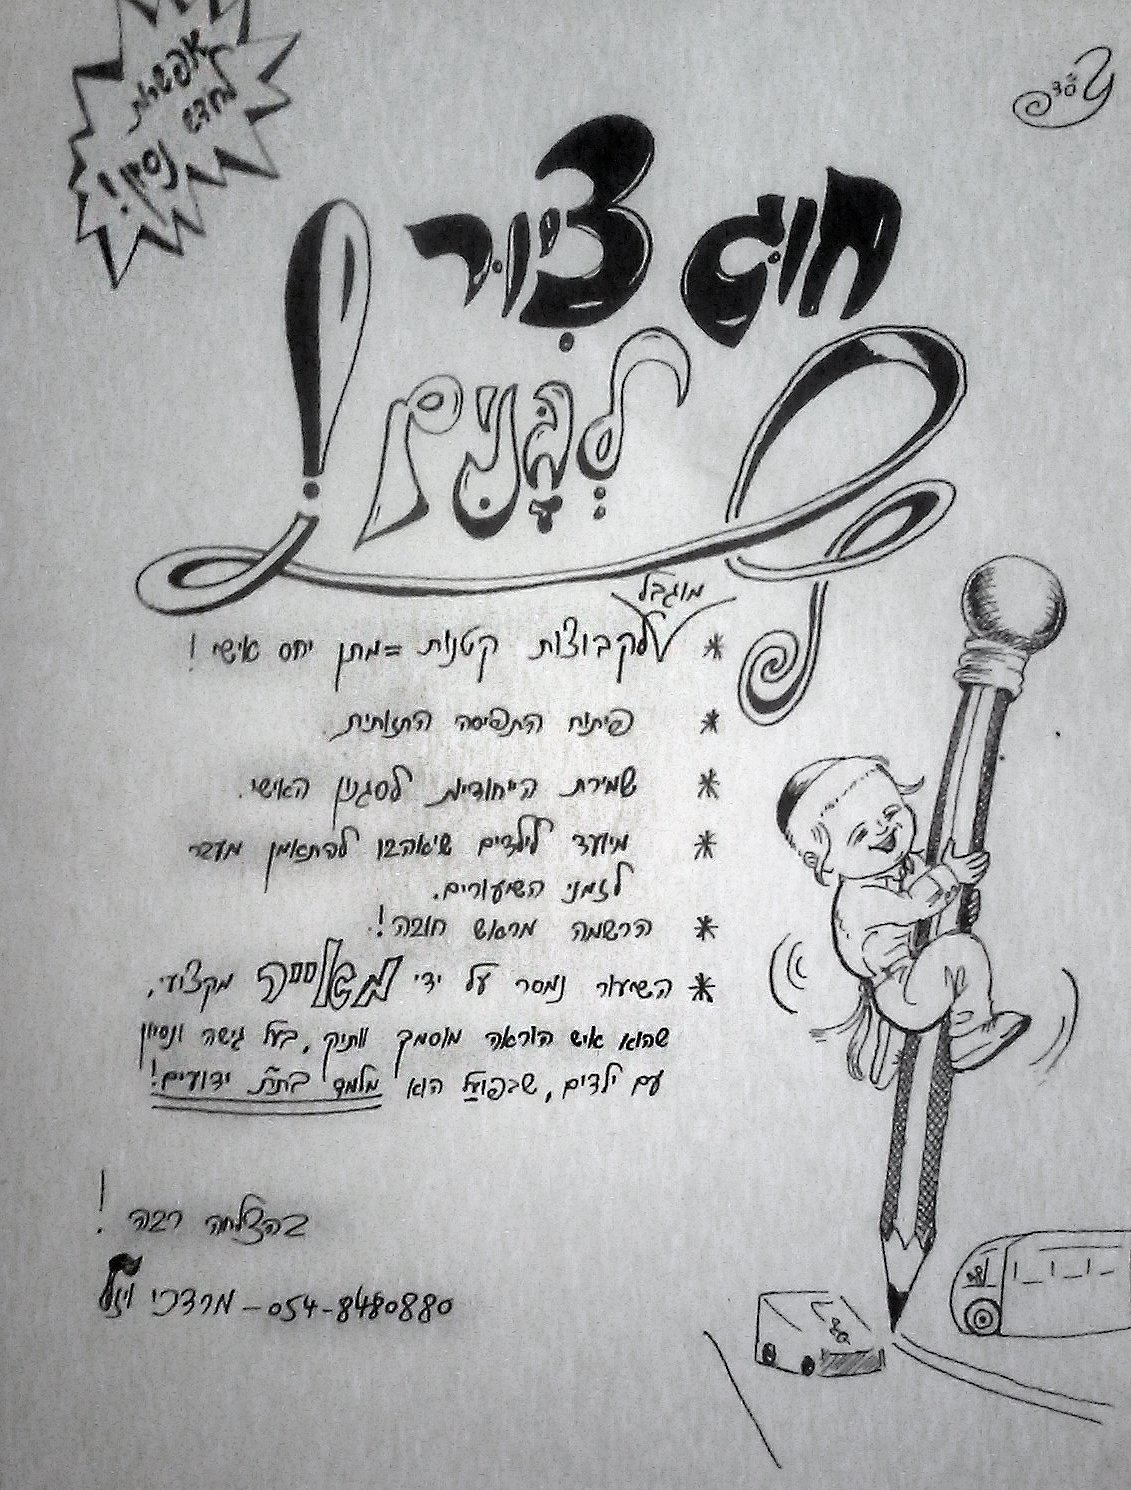 בס"ד
אפשרות
לחדש
נסיון!
חוג צִיּוּר
לְבָּנִים!
מוגבל
לקבוצות קטנות = מתן יחס אישי!
* פיתוח התפיסה החזותית.
* שמירת הייחודיות לסגנון האישי.
* מיועד לילדים שיאהבו להתאמן מעבר
לזמני השיעורים.
* הרשמה מראש חובה!
* השיעור נמסר על ידי מאייר מקצועי,
שהוא איש הוראה מוסמך וותיק, בעל גישה ונסיון
עם ילדים, שבפועל הוא מלמד בת"ת ידועים!
בהצלחה רבה!
054-8480880 - מרדכי ויזל